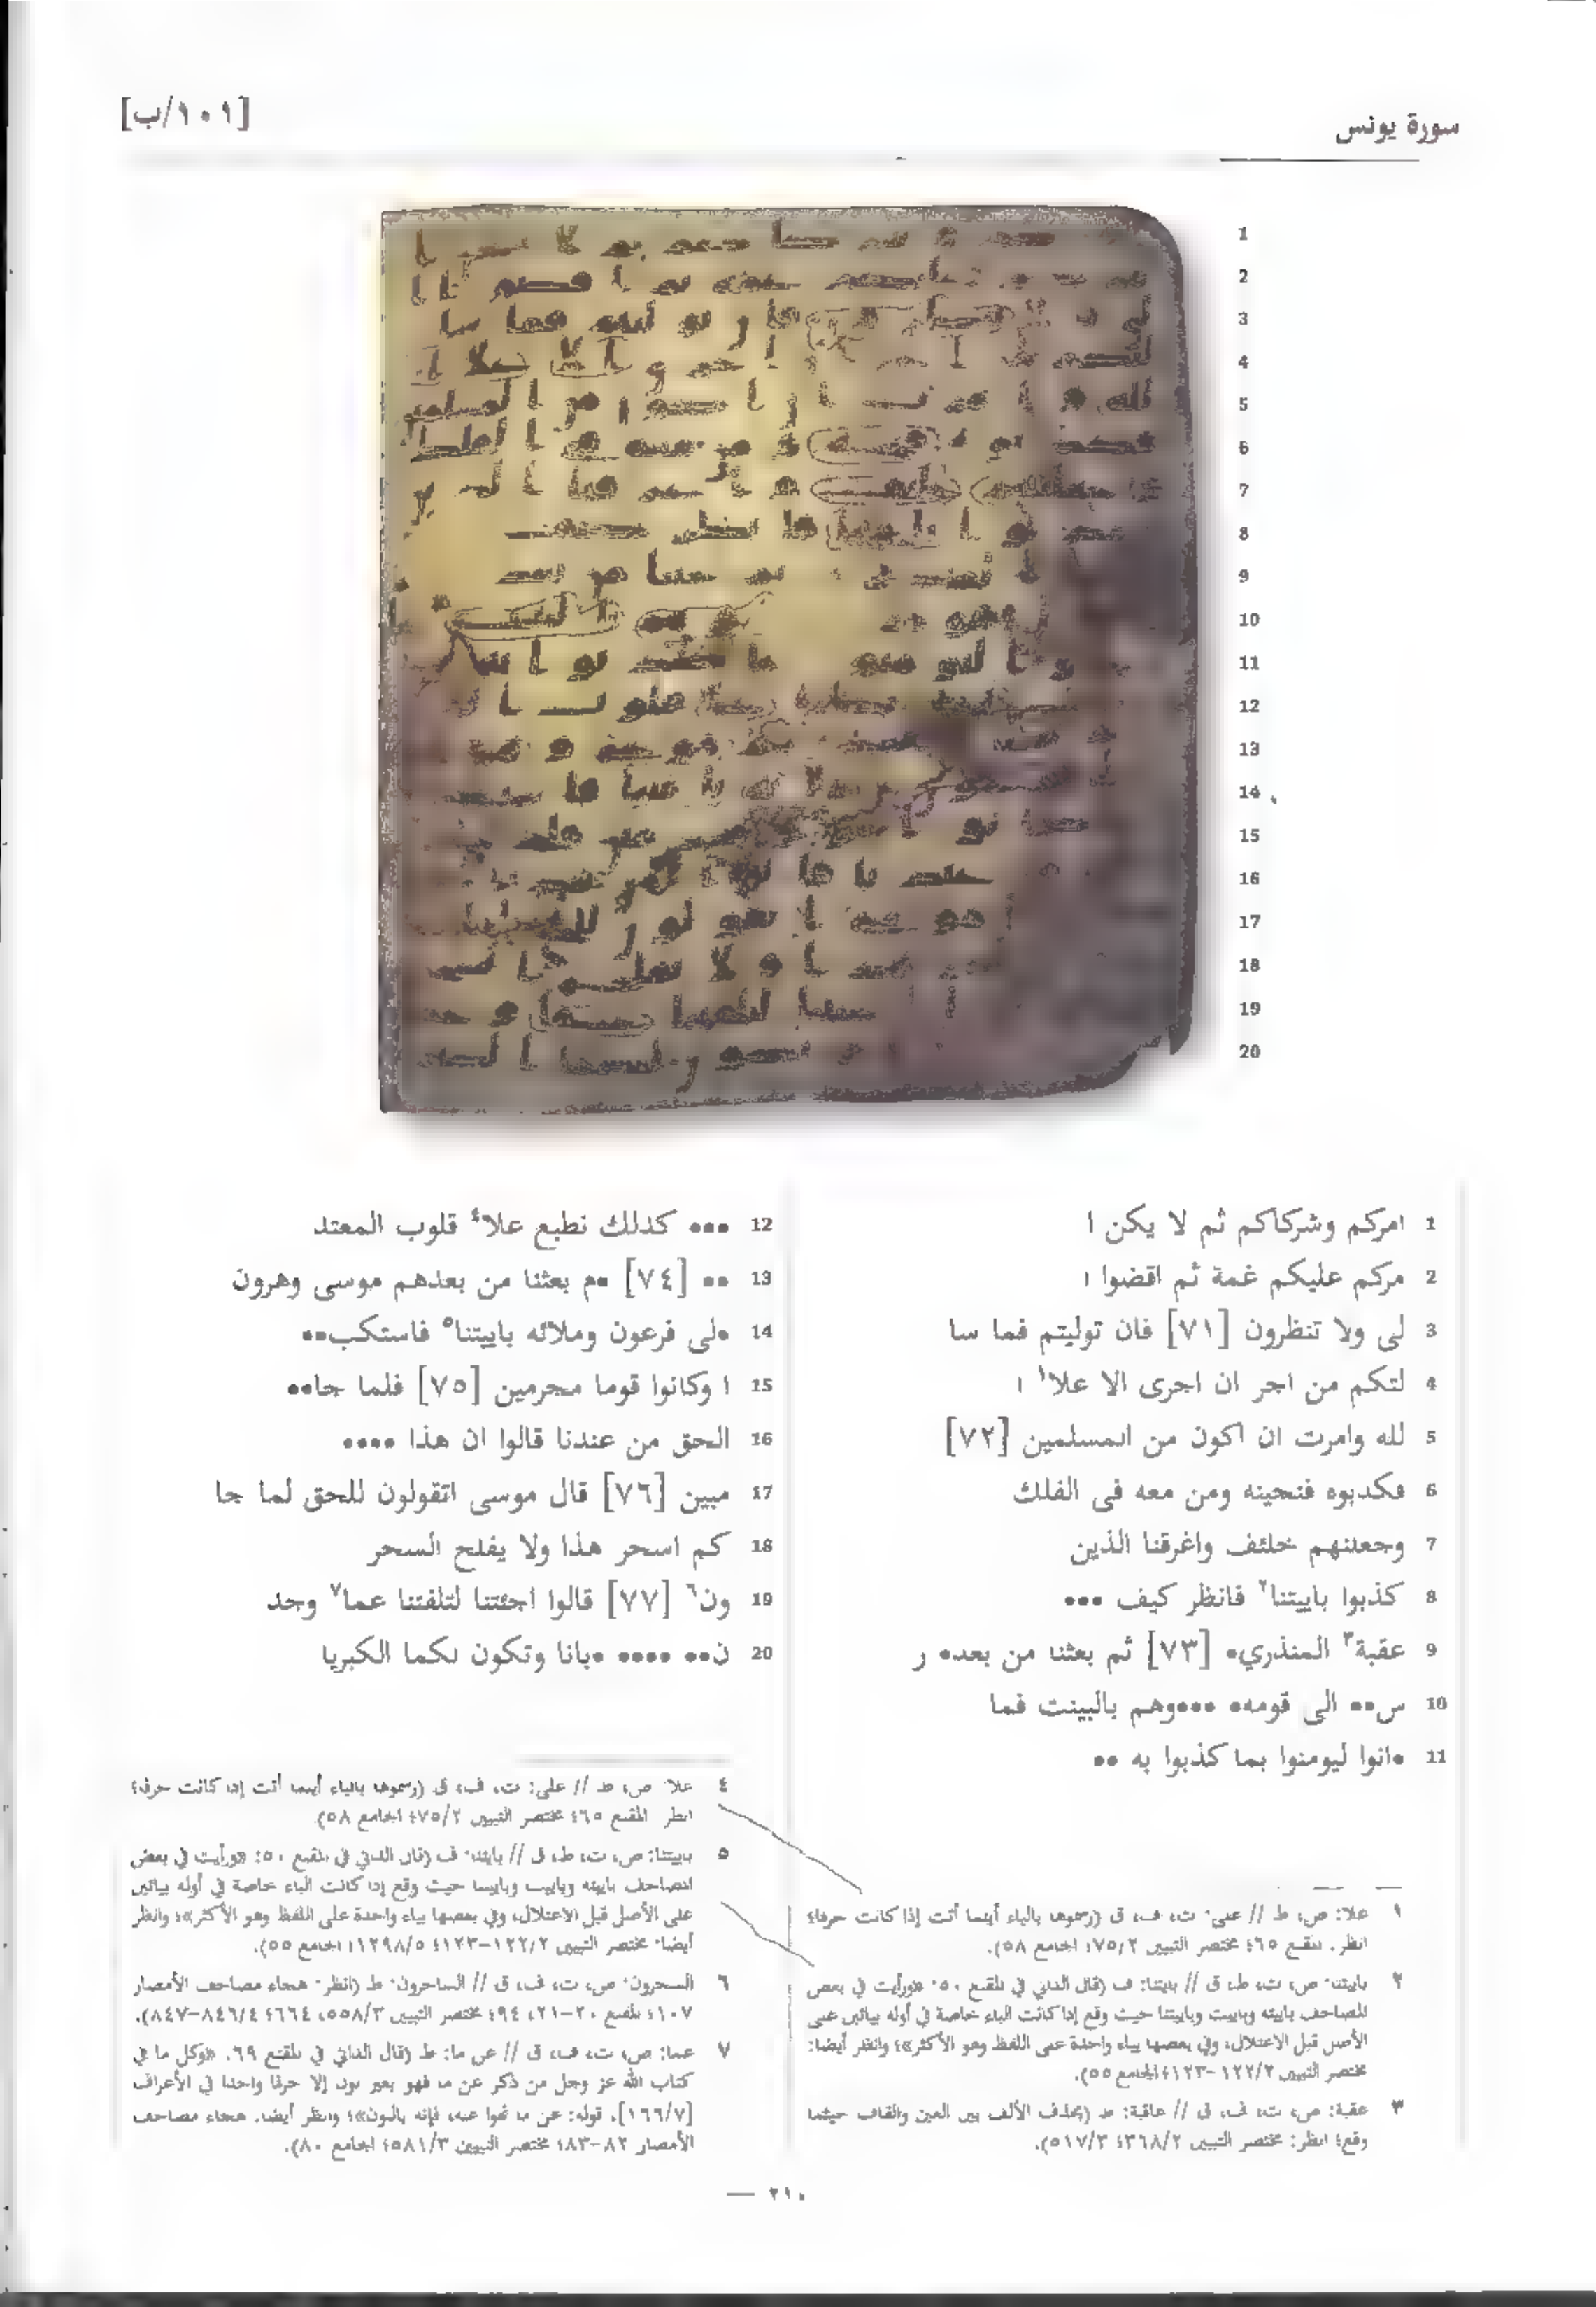 سورة يونس
[١٠١/ب]
1
2
3
4
5
6
7
8
9
10
11
12
13
14
15
16
17
18
19
20
1 امركم وشركاكم ثم لا يكن ا
2 مركم عليكم غمة ثم اقضوا ا
3 لى ولا تنظرون [٧١] فان توليتم فما سا
4 لتكم من اجر ان اجرى الا علا١ ا
5 لله وامرت ان اكون من المسلمين [٧٢]
6 فكذبوه فنجينه ومن معه فى الفلك
7 وجعلنهم خلئف واغرقنا الذين
8 كذبوا باييتنا٢ فانظر كيف •••
9 عقبة٣ المنذري• [٧٣] ثم بعثنا من بعد• ر
10 س•• الى قومه• •••وهم بالبينت فما
11 •انوا ليومنوا بما كذبوا به ••
12 ••• كذلك نطبع علا٤ قلوب المعتد
13 •• [٧٤] •م بعثنا من بعدهم موسى وهرون
14 •لى فرعون وملائه باييتنا٥ فاستكب••
15 ا وكانوا قوما مجرمين [٧٥] فلما جا••
16 الحق من عندنا قالوا ان هذا ••••
17 مبين [٧٦] قال موسى اتقولون للحق لما جا
18 كم اسحر هذا ولا يفلح السحر
19 ون٦ [٧٧] قالوا اجئتنا لتلفتنا عما٧ وجد
20 ن•• •••• •بانا وتكون لكما الكبريا
١ علا: ص، ط // على: ت، ف، ق (رسموها بالياء أينما أتت إذا كانت حرفا؛
انظر: المقنع ٦٥؛ مختصر التبيين ٧٥/٢؛ الجامع ٥٨).
٢ باييتنا: ص، ت، ط، ق // بايتنا: ف (قال الداني في المقنع ٥٠: «ورأيت في بعض
المصاحف باييته وباييت وباييتنا حيث وقع إذا كانت الباء خاصة في أوله بيائين على
الأصل قبل الاعتلال، وفي بعضها بياء واحدة على اللفظ وهو الأكثر»؛ وانظر أيضا:
مختصر التبيين ١٢٢/٢-١٢٣؛ الجامع ٥٥).
٣ عقبة: ص، ت، ف، ق // عاقبة: ط (بحذف الألف بين العين والقاف حيثما
وقع؛ انظر: مختصر التبيين ٣٦٨/٢؛ ٥١٧/٣).
٤ علا: ص، ط // على: ت، ف، ق (رسموها بالياء أينما أتت إذا كانت حرفا؛
انظر: المقنع ٦٥؛ مختصر التبيين ٧٥/٢؛ الجامع ٥٨).
٥ باييتنا: ص، ت، ط، ق // بايتنا: ف (قال الداني في المقنع ٥٠: «ورأيت في بعض
المصاحف باييته وباييت وباييتنا حيث وقع إذا كانت الباء خاصة في أوله بيائين
على الأصل قبل الاعتلال، وفي بعضها بياء واحدة على اللفظ وهو الأكثر»؛ وانظر
أيضا: مختصر التبيين ١٢٢/٢-١٢٣؛ ١٢٩٨/٥؛ الجامع ٥٥).
٦ السحرون: ص، ت، ف، ق // الساحرون: ط (انظر: هجاء مصاحف الأمصار
١٠٧؛ المقنع ٢٠-٢١، ٩٤؛ مختصر التبيين ٥٥٨/٣، ٦٦٤؛ ٨٤٦/٤-٨٤٧).
٧ عما: ص، ت، ف، ق // عن ما: ط (قال الداني في المقنع ٦٩: «وكل ما في
كتاب الله عز وجل من ذكر عن ما فهو بغير نون إلا حرفا واحدا في الأعراف
[١٦٦/٧]، قوله: عن ما نهوا عنه، فإنه بالنون»؛ وانظر أيضا: هجاء مصاحف
الأمصار ٨٢-٨٣؛ مختصر التبيين ٥٨١/٣؛ الجامع ٨٠).
٢١٠